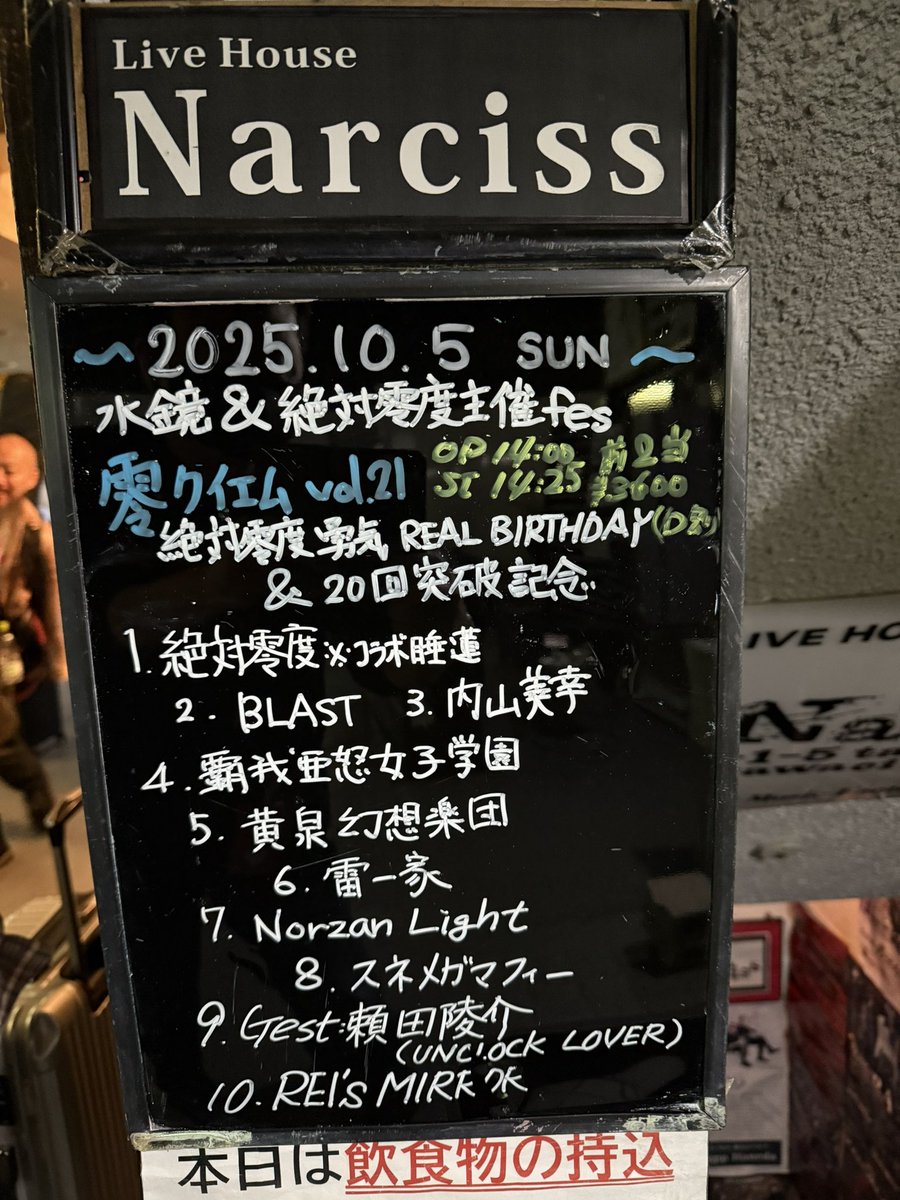 Live House
Narciss
~2025.10.5 SUN~
水鏡&絶対零度主催fes
零クイエム vol.21
OP 14:00 前2当
ST 14:25 ¥3600
絶対零度勇気 REAL BIRTHDAY(D別)
& 20回突破記念
1.絶対零度※コラボ睡蓮
2. BLAST 3.内山美幸
4.覇我亜怒女子学園
5.黄泉幻想楽団
6.雷一家
7. Norzan Light
8.スネメガマフィー
9.Gest:頼田陵介
(UNCLOCK LOVER)
10.REI's
本日は飲食物の持込
LIVE HO
Na
1-5